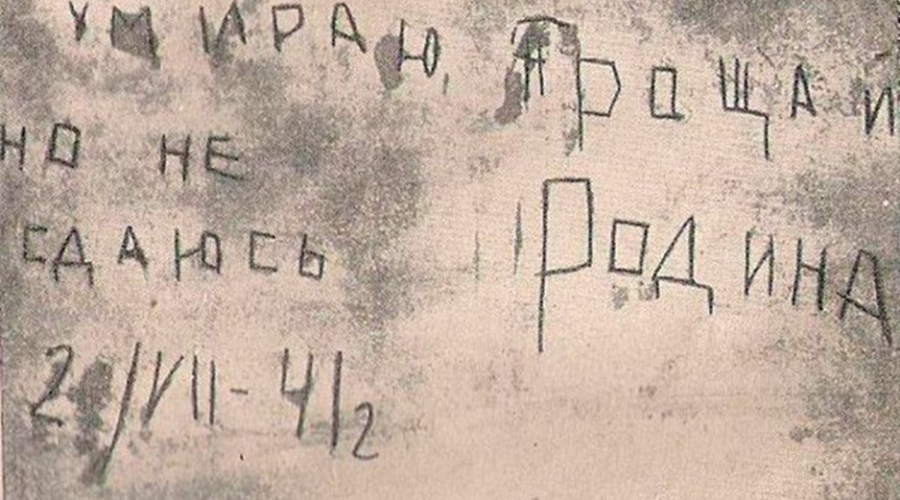 УМИРАЮ,
НО НЕ
СДАЮСЬ
20/VII-41г
ПРОЩАИ
РОДИНА